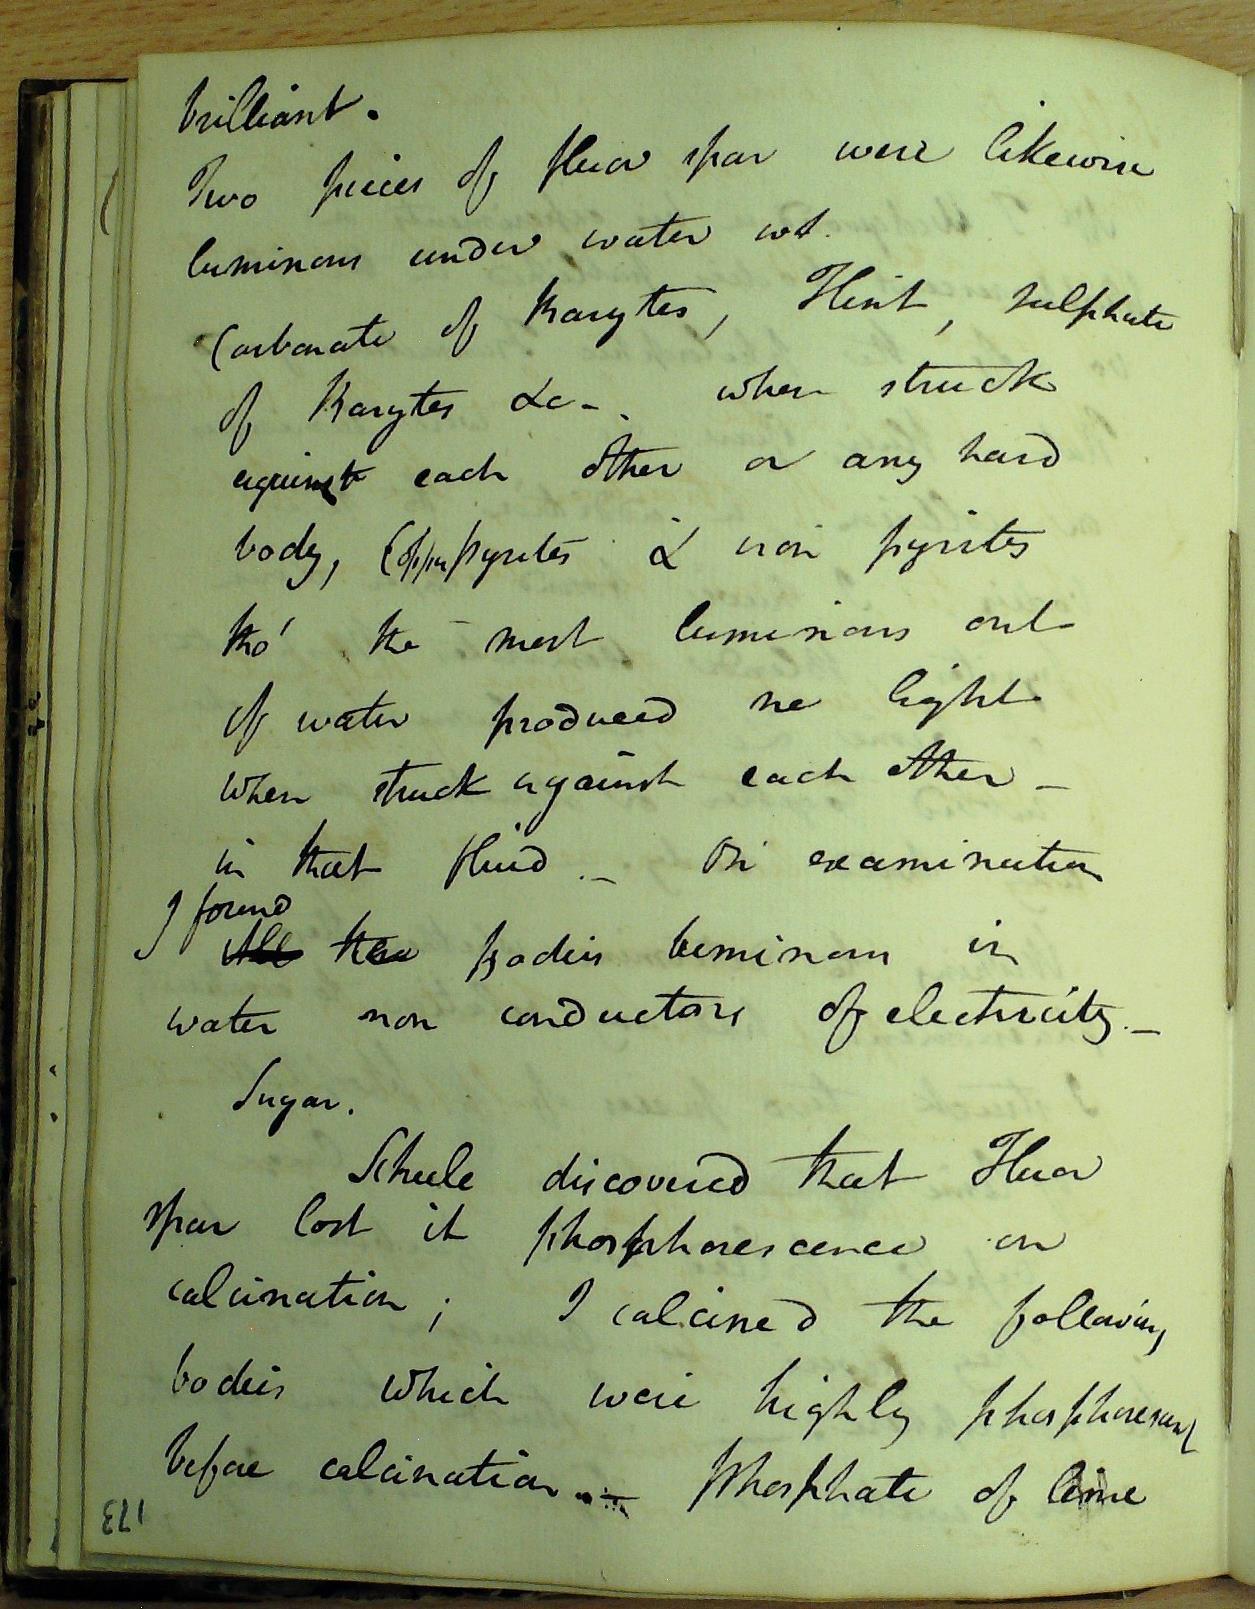 brilliant.
Two pieces of fluor spar were likewise
luminous under water
Carbonate of Barytes, Flint, sulphate
of Barytes &c -. when struck
against each other or any hard
body, Copper pyrites & iron pyrites
tho' the most luminous out
of water produced no light
when struck against each other -
in that fluid - On examination
I found
All the bodies luminous in
water non conductors of electricity. -
Sugar.
Scheele discovered that Fluor
spar lost it phosphorescence on
calcination; I calcined the following
bodies which were highly phosphorescent
before calcination. - Phosphate of lime
173